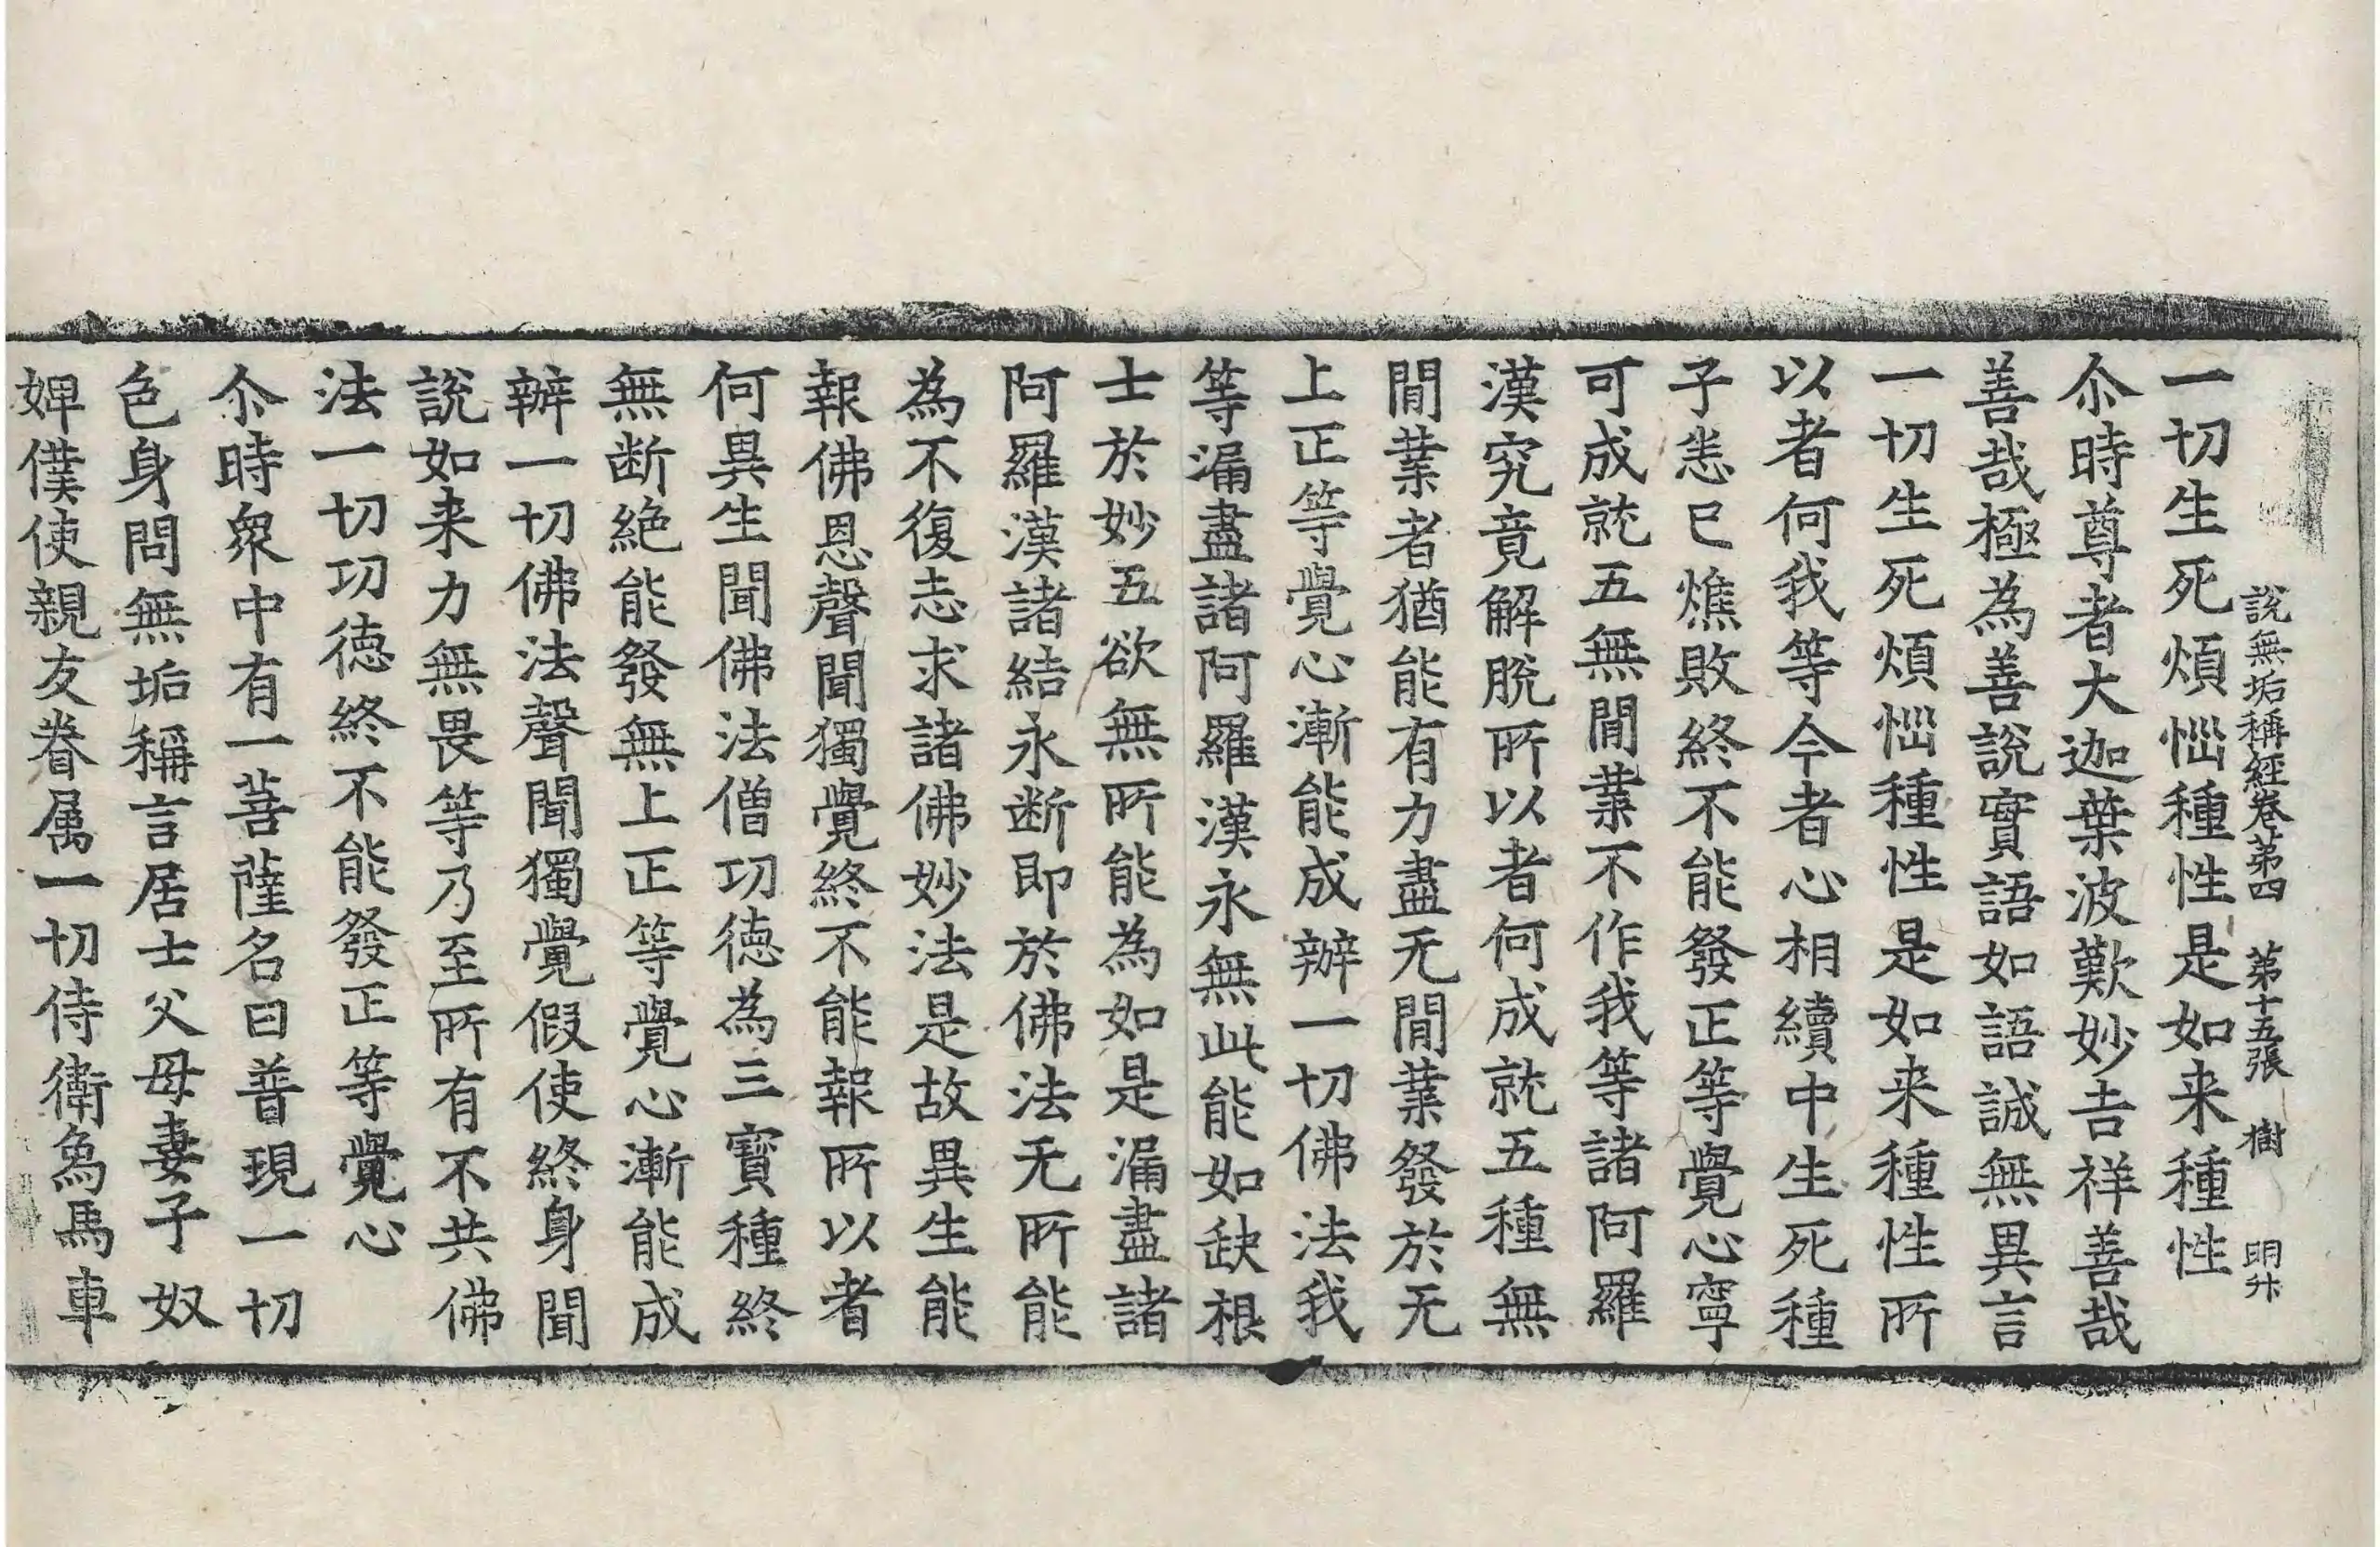 說無垢稱經卷苐四　苐十五張　樹　明升
一切生死煩惱種性是如来種性
尒時尊者大迦葉波歎妙吉祥善哉
善哉極為善說實語如語誠無異言
一切生死煩惱種性是如来種性所
以者何我等今者心相續中生死種
子恙已燋敗終不能發正等覺心寧
可成就五無閒業不作我等諸阿羅
漢究竟解脫所以者何成就五種無
閒業者猶能有力盡无閒業發於无
上正等覺心漸能成辦一切佛法我
等漏盡諸阿羅漢永無此能如缺根
士於妙五欲無所能為如是漏盡諸
阿羅漢諸結永断即於佛法无所能
為不復志求諸佛妙法是故異生能
報佛恩聲聞獨覺終不能報所以者
何異生聞佛法僧功德為三寶種終
無断絶能發無上正等覺心漸能成
辦一切佛法聲聞獨覺假使終身聞
說如来力無畏等乃至所有不共佛
法一切功德終不能發正等覺心
尒時衆中有一菩薩名曰普現一切
色身問無垢稱言居士父母妻子奴
婢僕使親友眷属一切侍衛象馬車